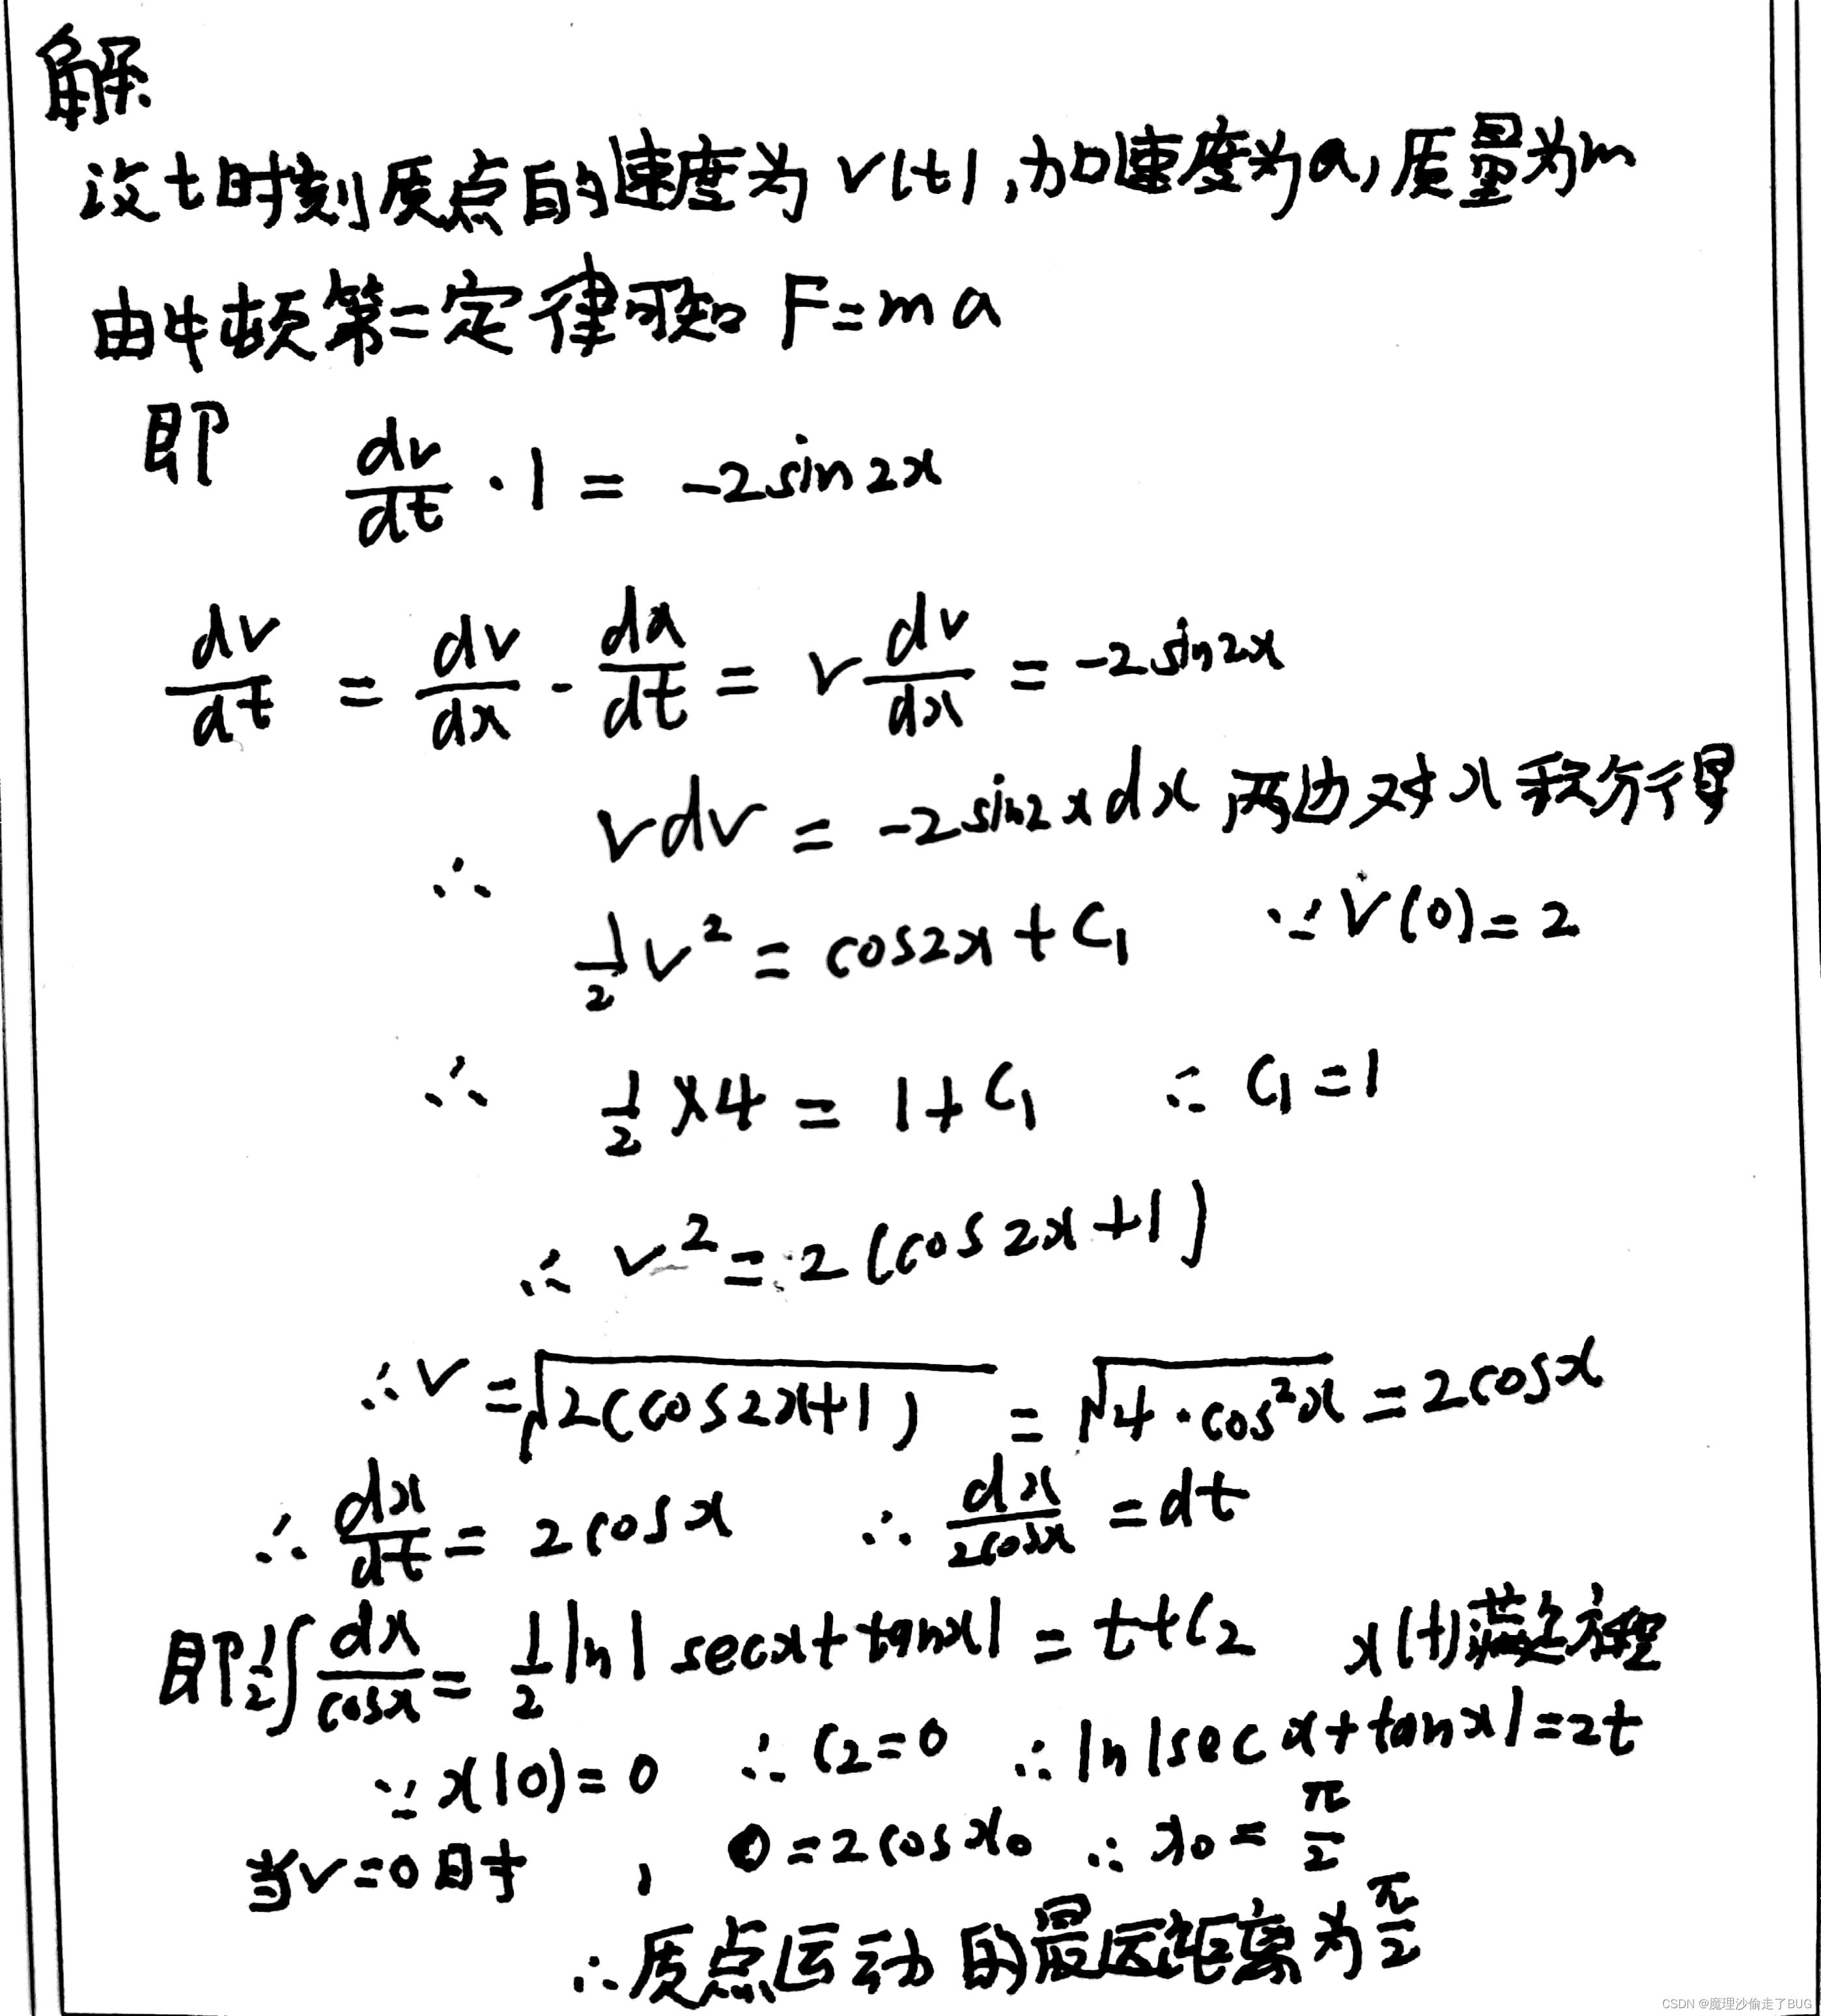 解.
设t时刻质点的速度为v(t),加速度为a,质量为m
由牛顿第二定律可知 F=ma
即 dv/dt · 1 = -2sin2x
dv/dt = dv/dx · dx/dt = v dv/dx = -2sin2x
∴ vdv = -2sin2xdx 两边对x积分得
1/2 v² = cos2x + C₁ ∵ V(0)=2
∴ 1/2 × 4 = 1 + C₁ ∴ C₁ = 1
∴ v² = 2(cos2x+1)
∴ v = √(2(cos2x+1)) = √(4·cos²x) = 2cosx
∴ dx/dt = 2cosx ∴ dx/(2cosx) = dt
即 1/2 ∫ dx/cosx = 1/2 ln|secx+tanx| = t+C₂ x(t)满足方程
∵ x(0)=0 ∴ C₂=0 ∴ ln|secx+tanx|=2t
当v=0时, 0=2cosx₀ ∴ x₀ = π/2
∴ 质点运动的最远距离为 π/2
CSDN @魔理沙偷走了BUG